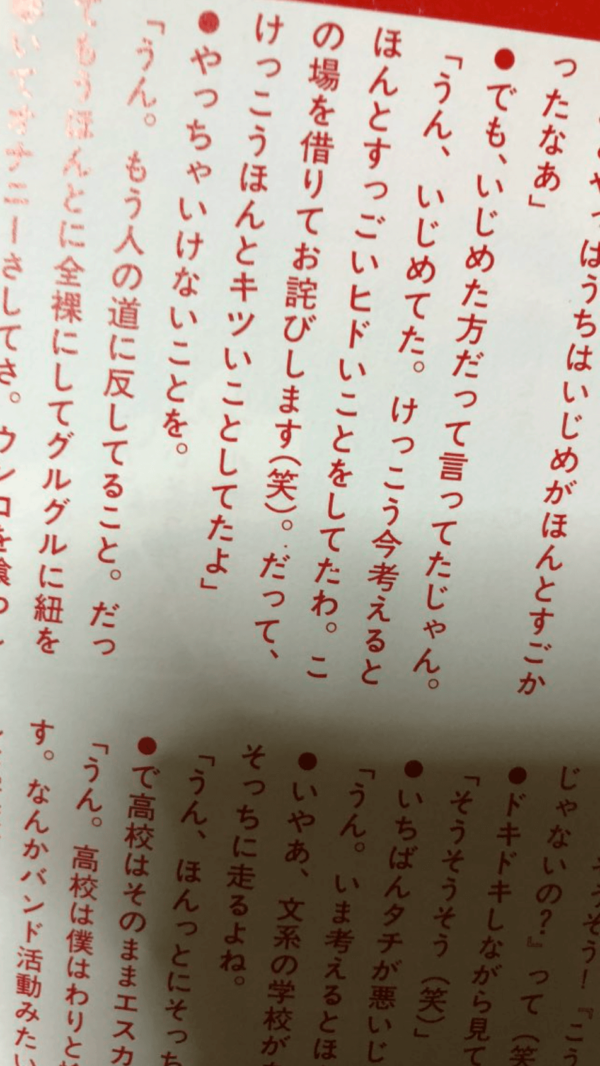 やっぱうちはいじめがほんとすごか
ったなあ」
●でも、いじめた方だって言ってたじゃん。
「うん、いじめてた。けっこう今考えると
ほんとすっごいヒドいことをしてたわ。こ
の場を借りてお詫びします(笑)。だって、
けっこうほんとキツいことしてたよ」
●やっちゃいけないことを。
「うん。もう人の道に反してること。だっ
てもうほんとに全裸にしてグルグルに紐を
巻いてオナニーさしてさ。ウンコを喰わし
そうそう!『こう
じゃないの?』って(笑
●ドキドキしながら見て
「そうそうそう(笑)」
●いちばんタチが悪いじ
「うん。いま考えるとほ
●いやあ、文系の学校が
そっちに走るよね。
「うん、ほんっとにそっち
●で高校はそのままエスカ
「うん。高校は僕はわりと
す。なんかバンド活動みたい